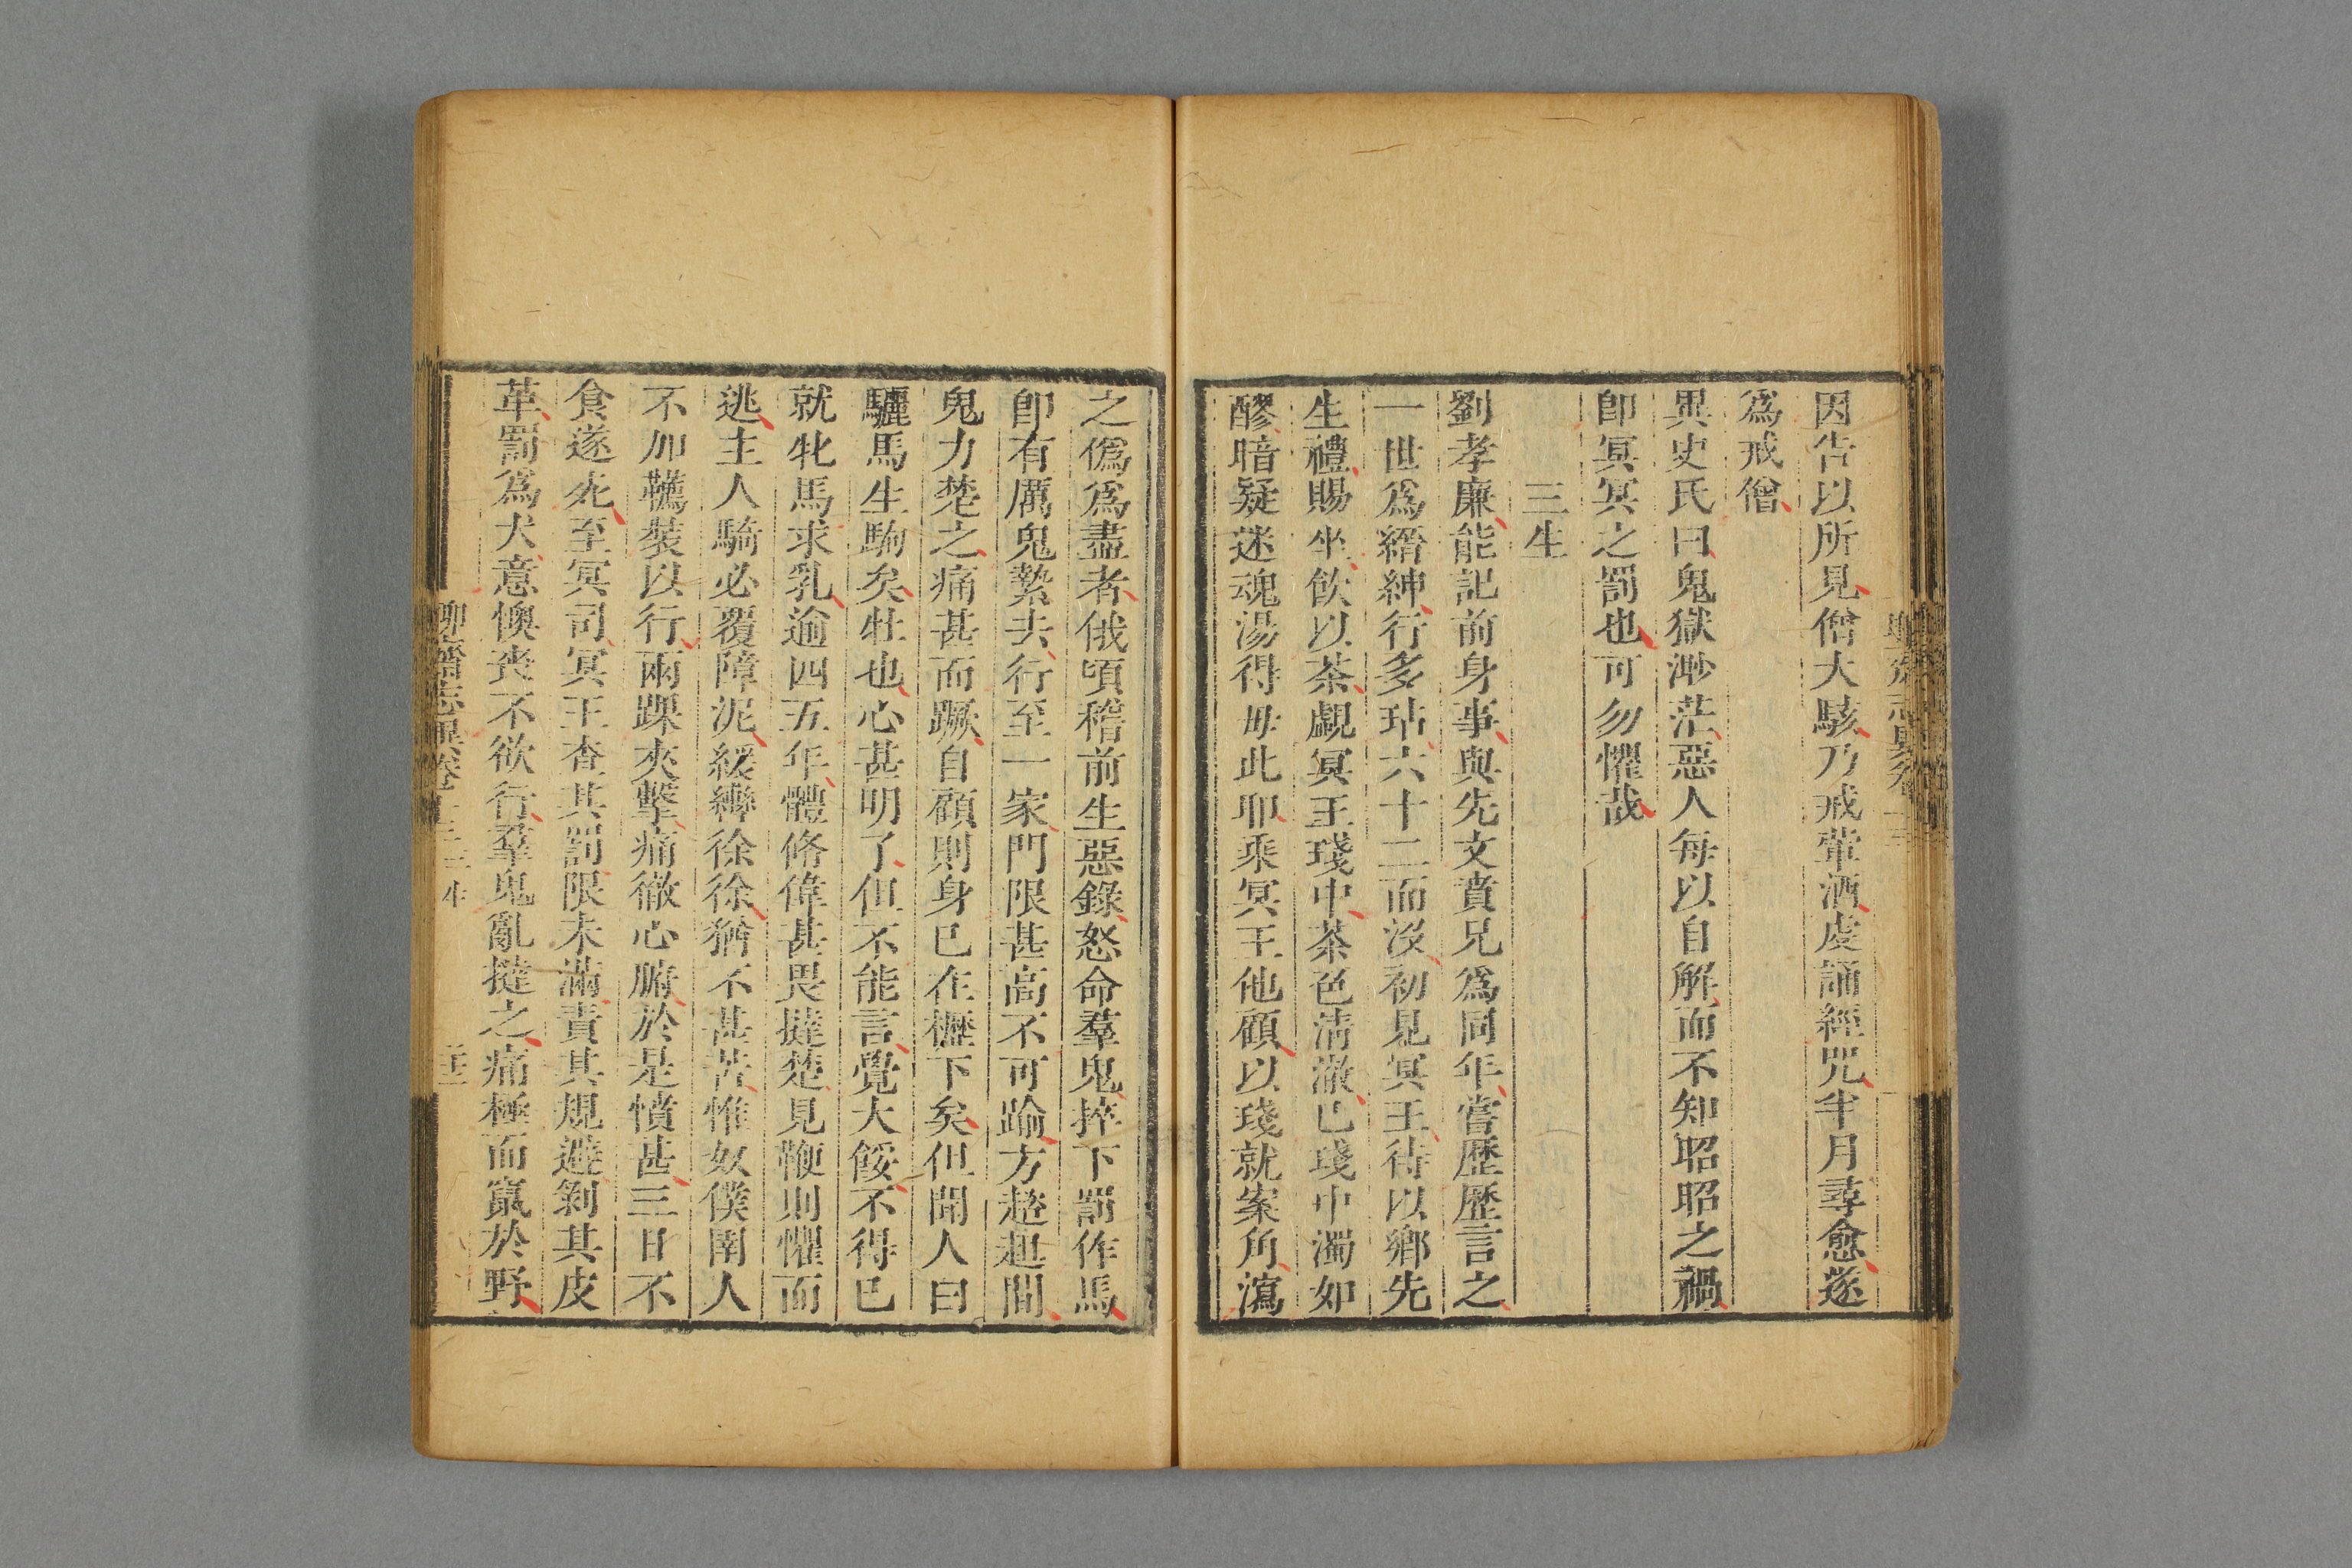 因告以所見僧大駭乃戒葷酒虔誦經咒半月尋愈遂
爲戒僧
異史氏曰鬼獄渺茫惡人每以自解而不知昭昭之禍
卽冥冥之罰也可勿懼哉
三生
劉孝廉能記前身事與先文賁兄爲同年嘗歷歷言之
一世爲縉紳行多玷六十二而沒初見冥王待以鄉先
生禮賜坐飲以茶覷冥王琖中茶色淸澈己琖中濁如
醪暗疑迷魂湯得毋此耶乘冥王他顧以琖就案角瀉
之僞爲盡者俄頃稽前生惡錄怒命羣鬼捽下罰作馬
卽有厲鬼縶去行至一家門限甚高不可踰方趑趄間
鬼力楚之痛甚而蹶自顧則身已在櫪下矣但聞人曰
驪馬生駒矣牡也心甚明了但不能言覺大餒不得已
就牝馬求乳逾四五年體脩偉甚畏撻楚見鞭則懼而
逃主人騎必覆障泥緩轡徐徐猶不甚苦惟奴僕圉人
不加韉裝以行兩踝夾擊痛徹心腑於是憤甚三日不
食遂死至冥司冥王查其罰限未滿責其規避剝其皮
革罰爲犬意懊喪不欲行羣鬼亂撻之痛極而竄於野
聊齋志異卷 三生